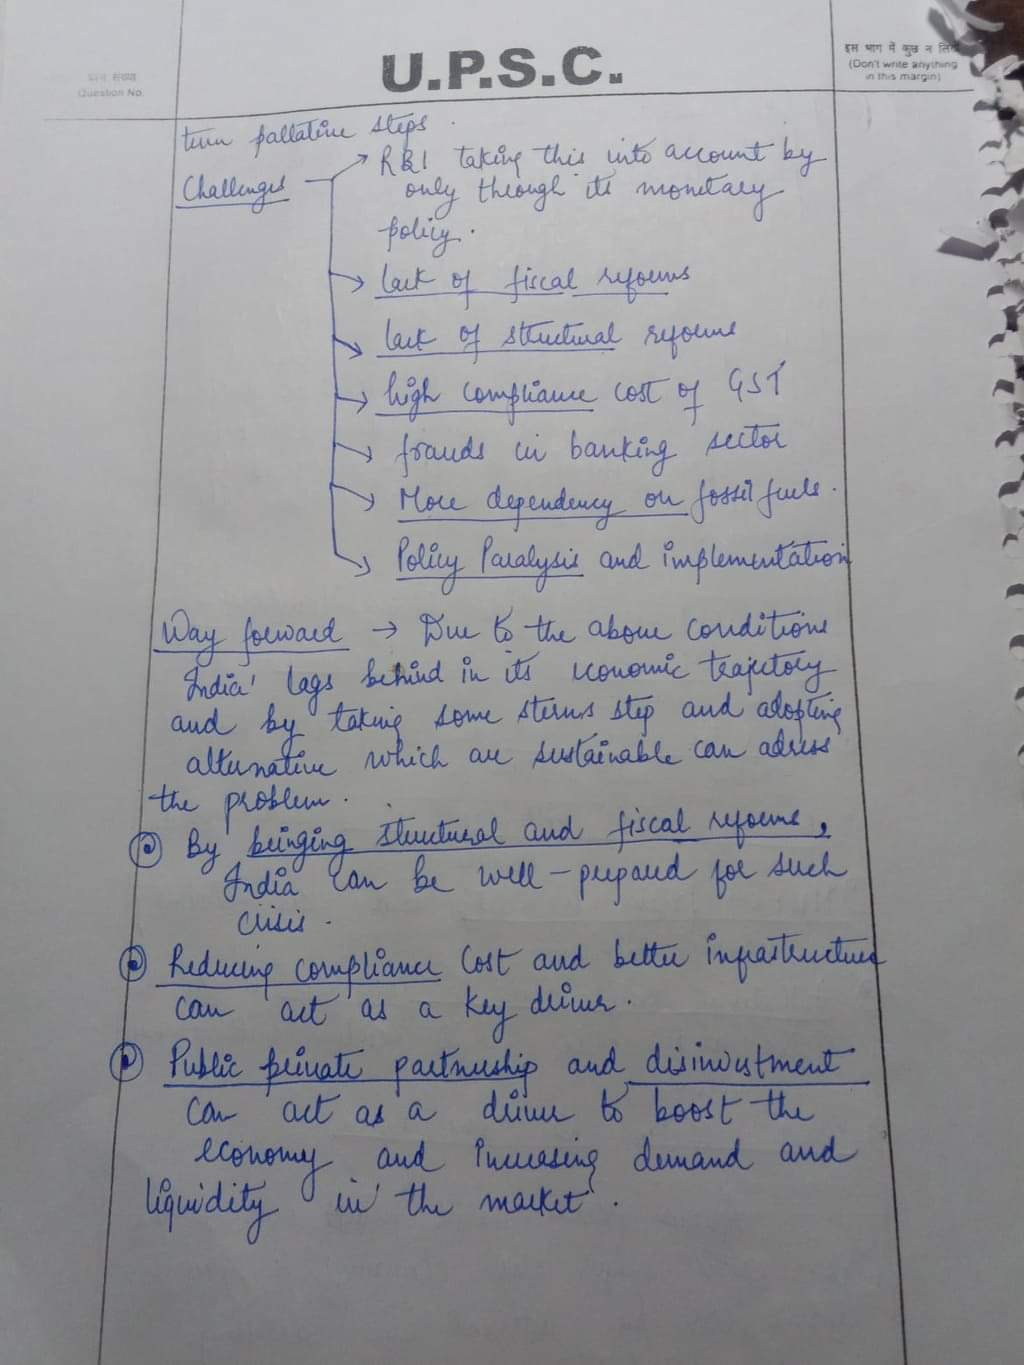 U.P.S.C.
प्रश्न संख्या
Question No.
इस भाग में कुछ न
(Don't write anything
in this margin)
term pallative steps.
Challenges → RBI taking this into account by
only through its monetary
policy.
→ lack of fiscal reforms
→ lack of structural reforms
→ high compliance cost of GST
→ frauds in banking sector
→ More dependency on fossil fuels.
→ Policy Paralysis and implementation
Way forward → Due to the above conditions
India lags behind in its economic trajetory
and by taking some sterns step and adopting
alternative which are sustainable can adress
the problem.
By bringing structural and fiscal reforms,
India can be well-prepared for such
crisis.
Reducing compliance cost and better infrastructure
can act as a key driver.
Public private partnership and disinvestment
can act as a driver to boost the
economy and increasing demand and
liquidity in the market.